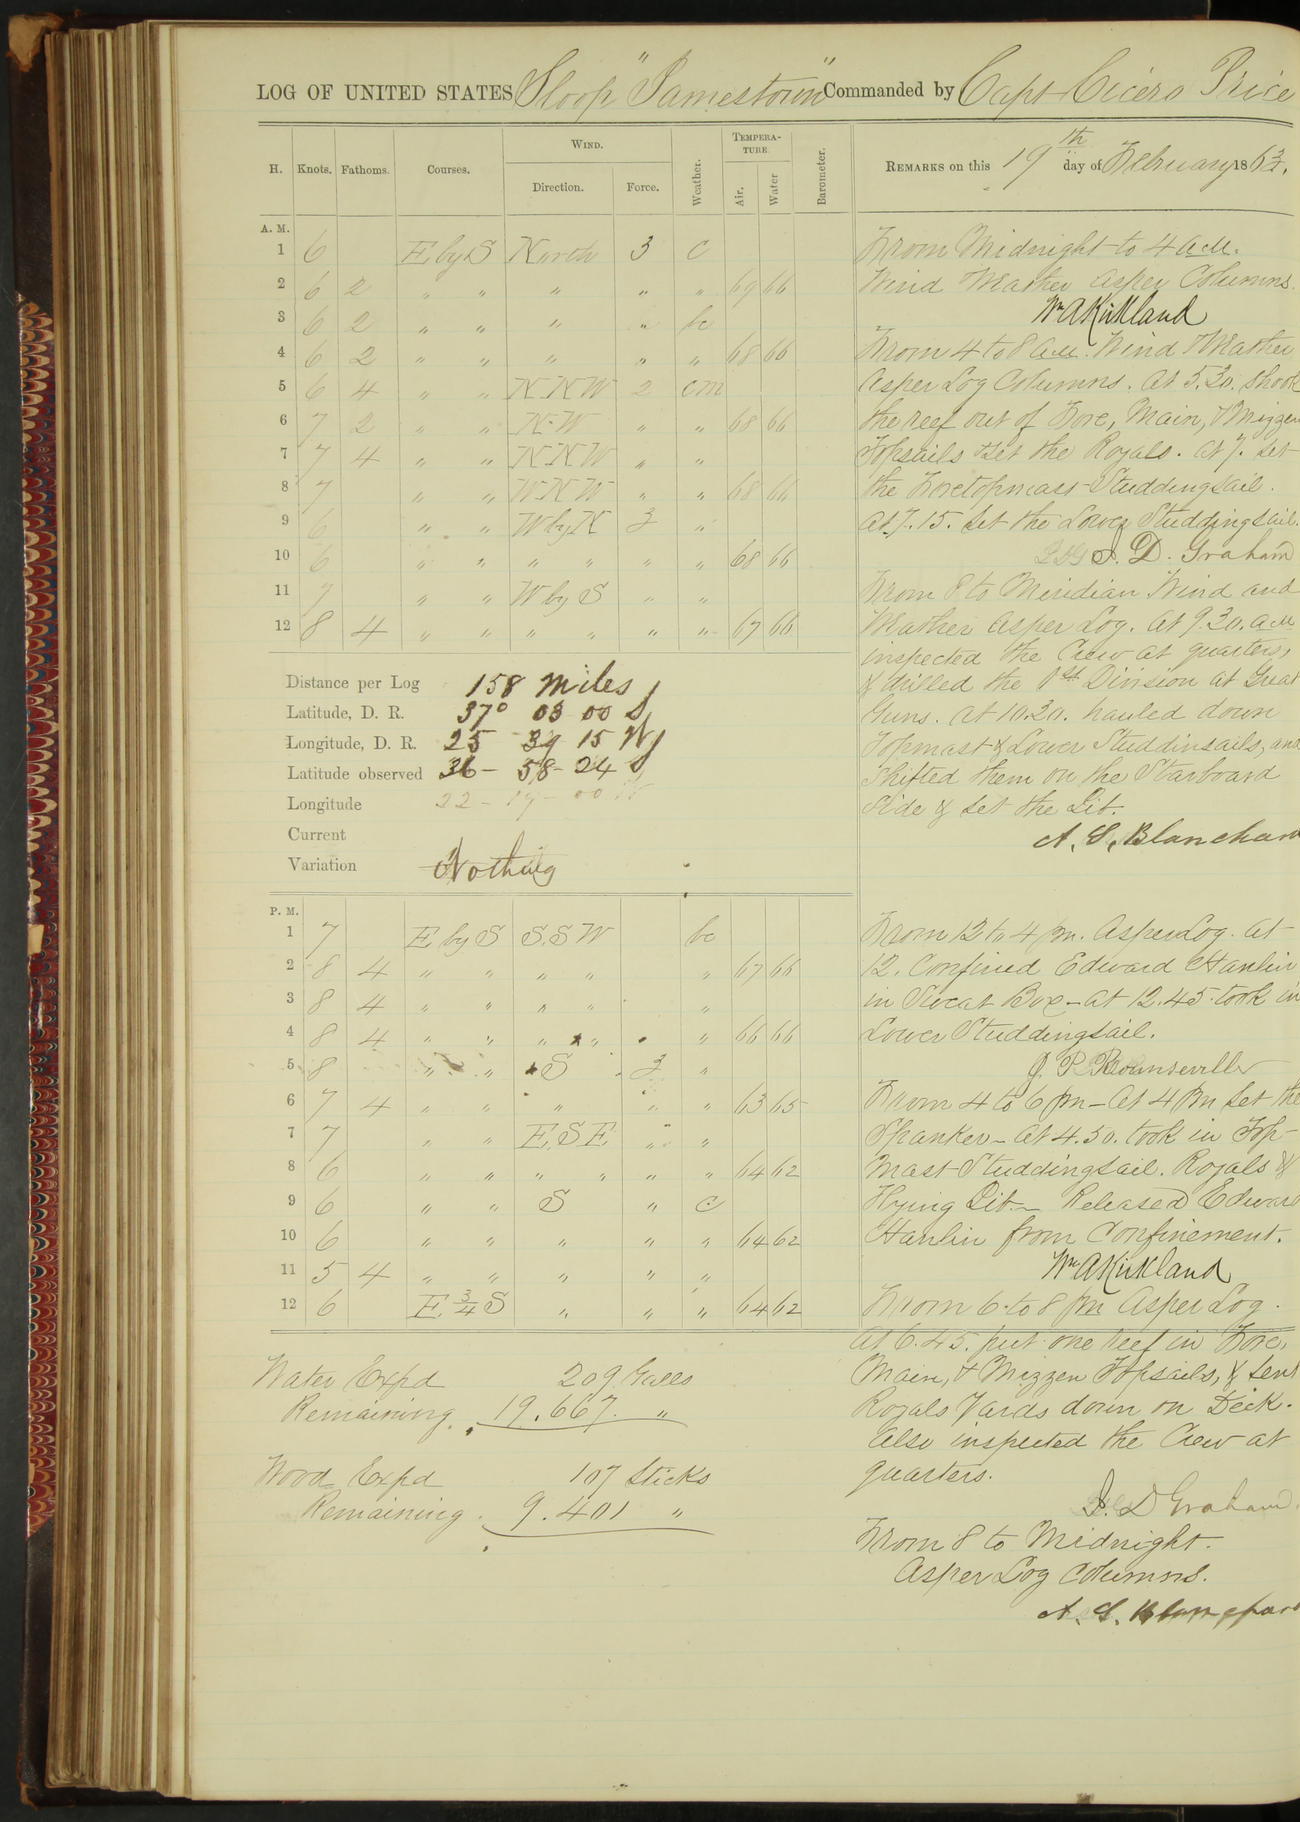 LOG OF UNITED STATES Sloop "Jamestown" Commanded by Capt Cicero Price
H. Knots. Fathoms. Courses. WIND. Direction. Force. Weather. TEMPERATURE. Air. Water Barometer. REMARKS on this 19th day of February 1863.
A. M.
1 6 E by S North 3 c
2 6 2 " " " " " 69 66
3 6 2 " " " " bc
4 6 2 " " " " " 68 66
5 6 4 " " N.N.W 2 cm
6 7 2 " " N.W " " 68 66
7 7 4 " " N.N.W " "
8 7 " " W.N.W " " 68 66
9 6 " " W by N 3 "
10 6 " " " " " " 68 66
11 7 " " W by S " "
12 8 4 " " " " " " 67 66
Distance per Log 158 miles
Latitude, D. R. 37° 03 00 S
Longitude, D. R. 25 39 15 W
Latitude observed 36 - 58 - 24 S
Longitude 22 - 19 - 00 W
Current
Variation Nothing
P. M.
1 7 E by S S.S.W bc
2 8 4 " " " " " 67 66
3 8 4 " " " " "
4 8 4 " " " " " 66 66
5 8 " " S 3 "
6 7 4 " " " " " 63 65
7 7 " " E.S.E " "
8 6 " " " " " " 64 62
9 6 " " S " c
10 6 " " " " " 64 62
11 5 4 " " " " "
12 6 E 3/4 S " " " 64 62
Water Expd 209 Galls
Remaining 19.667. "
Wood Expd 107 Sticks
Remaining. 9.401 "
From Midnight to 4 a.m.
Wind Weather asper Columns.
Wm A Kirkland
From 4 to 8 a.m. Wind & Weather
asper Log Columns. At 5.30. shook
the reef out of Fore, Main, & Mizzen
Topsails & set the Royals. at 7. set
the Foretopmast Studdingsail.
at 7.15. set the Lower Studdingsail.
J. D. Graham
From 8 to Meridian Wind and
Weather asper Log. At 9.30. a.m
inspected the Crew at quarters,
& drilled the 1st Division at Great
Guns. At 10.30. hauled down
Topmast & Lower Studdinsails, and
shifted them on the Starboard
side & set the Jib.
A. S. Blanchard
From 12 to 4 pm. Asper Log. at
12. Confined Edward Hanlin
in Sweat Box - at 12.45. took in
Lower Studdingsail.
J. P. Rounseville
From 4 to 6 pm - At 4 pm set the
Spanker - At 4.50. took in Top-
mast Studdingsail. Royals &
Flying Jib - Released Edward
Hanlin from Confinement.
Wm A Kirkland
From 6 to 8 pm Asper Log.
At 6.45. put one reef in Fore,
Main, & Mizzen Topsails, & sent
Royals Yards down on Deck.
Also inspected the Crew at
quarters.
J. D Graham
From 8 to Midnight.
Asper Log Columns.
A. S. Blanchard